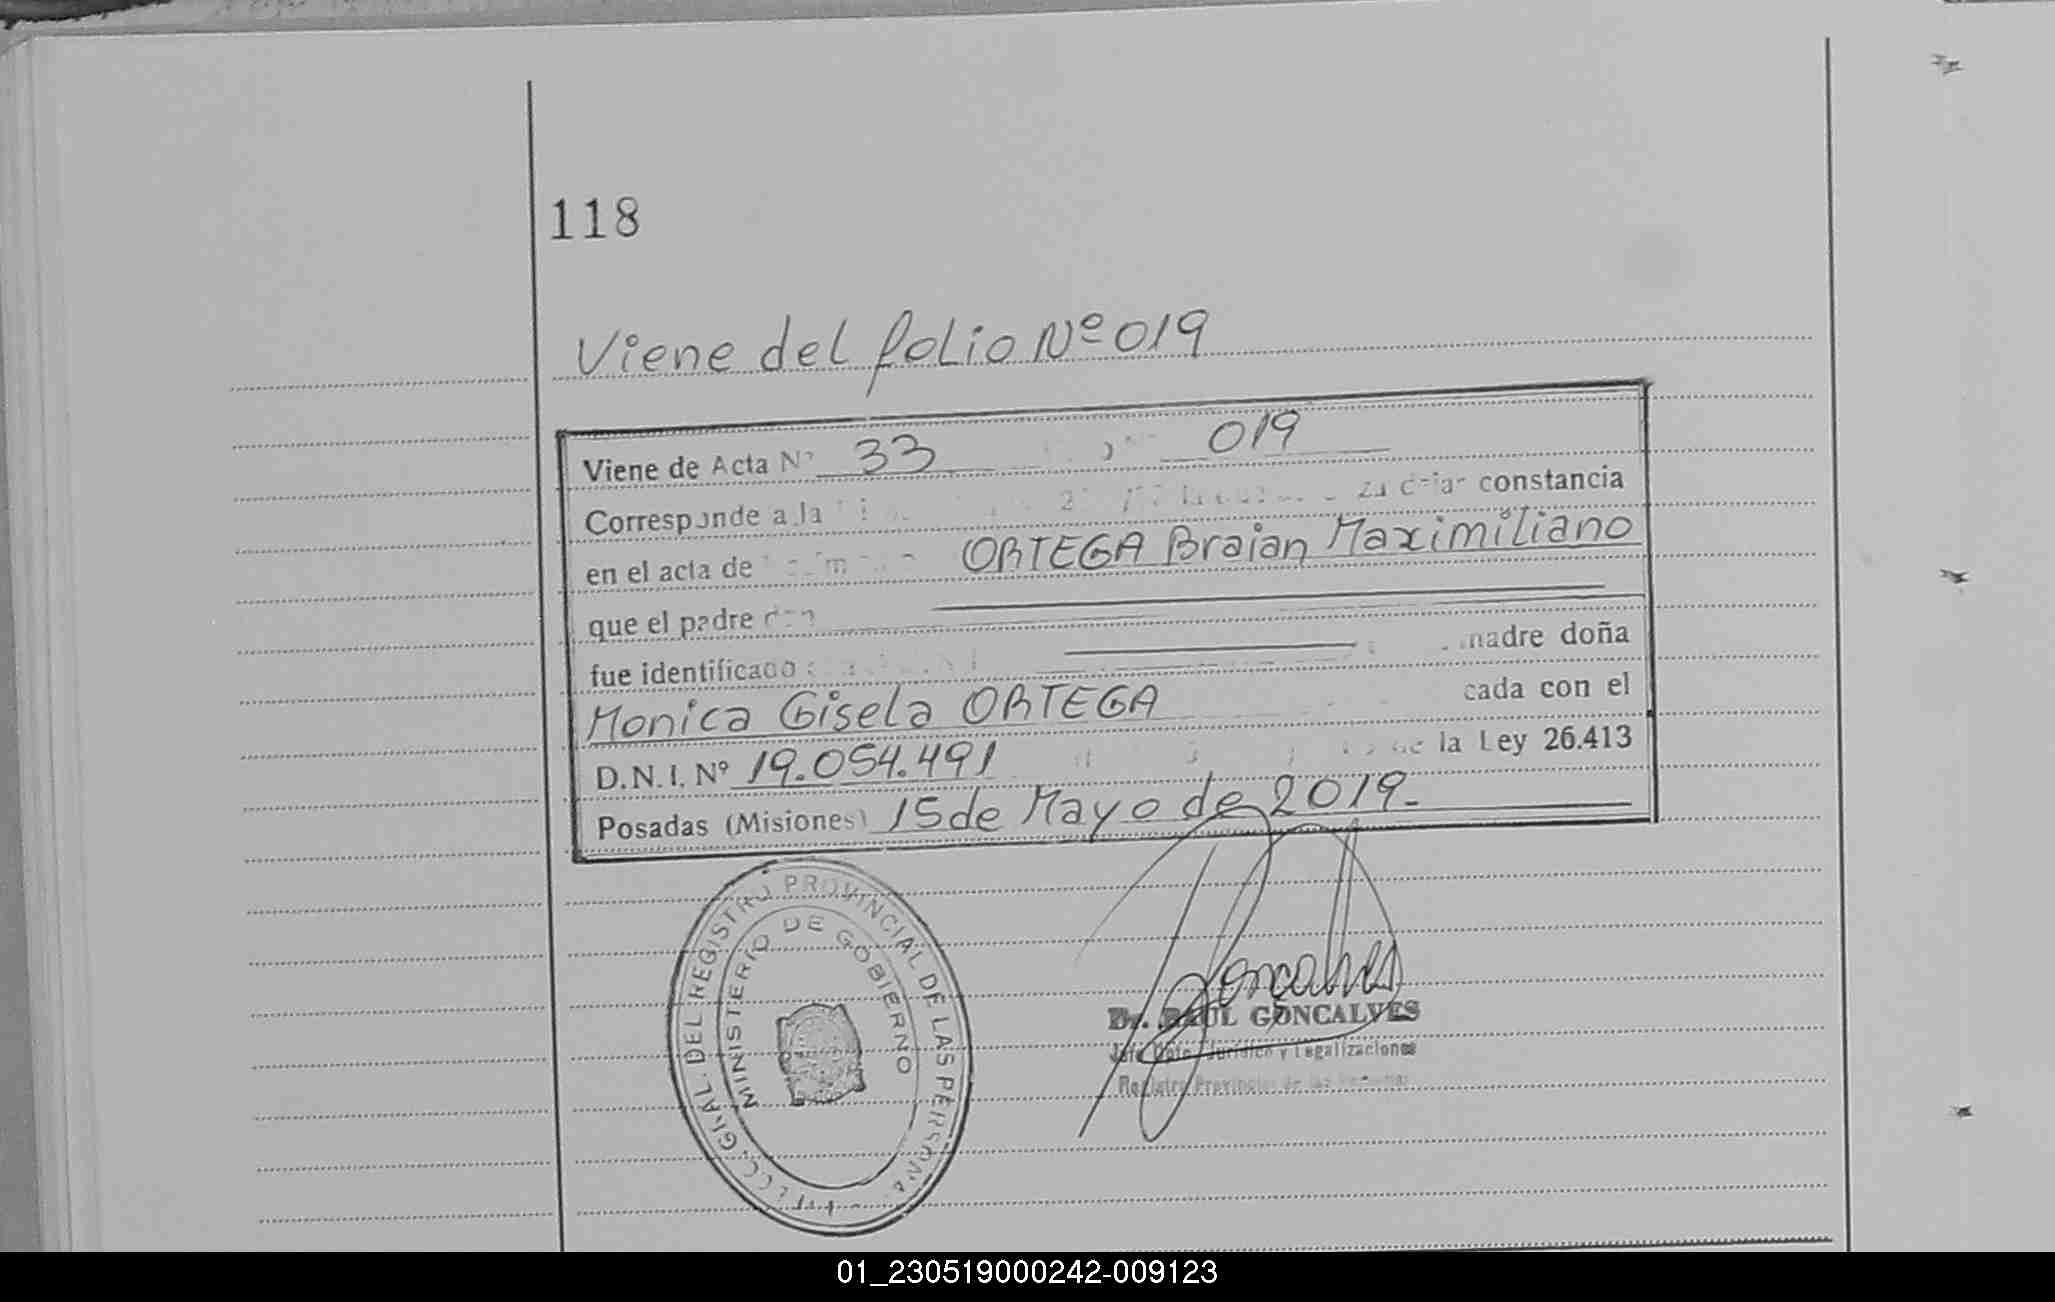 118
Viene del folio Nº 019
Viene de Acta Nº 33 019
Corresponde a la constancia
en el acta de ORTEGA Braian Maximiliano
que el padre don
fue identificado madre doña
Monica Gisela ORTEGA cada con el
D.N.I. Nº 19.054.491 de la Ley 26.413
Posadas (Misiones) 15 de Mayo de 2019.-
DIRECC. GRAL. DEL REGISTRO PROVINCIAL DE LAS PERSONAS
MINISTERIO DE GOBIERNO
Goncalves
Dr. RAUL GONCALVES
Jefe Dpto. Jurídico y Legalizaciones
Registro Provincial de las Personas
01_230519000242-009123